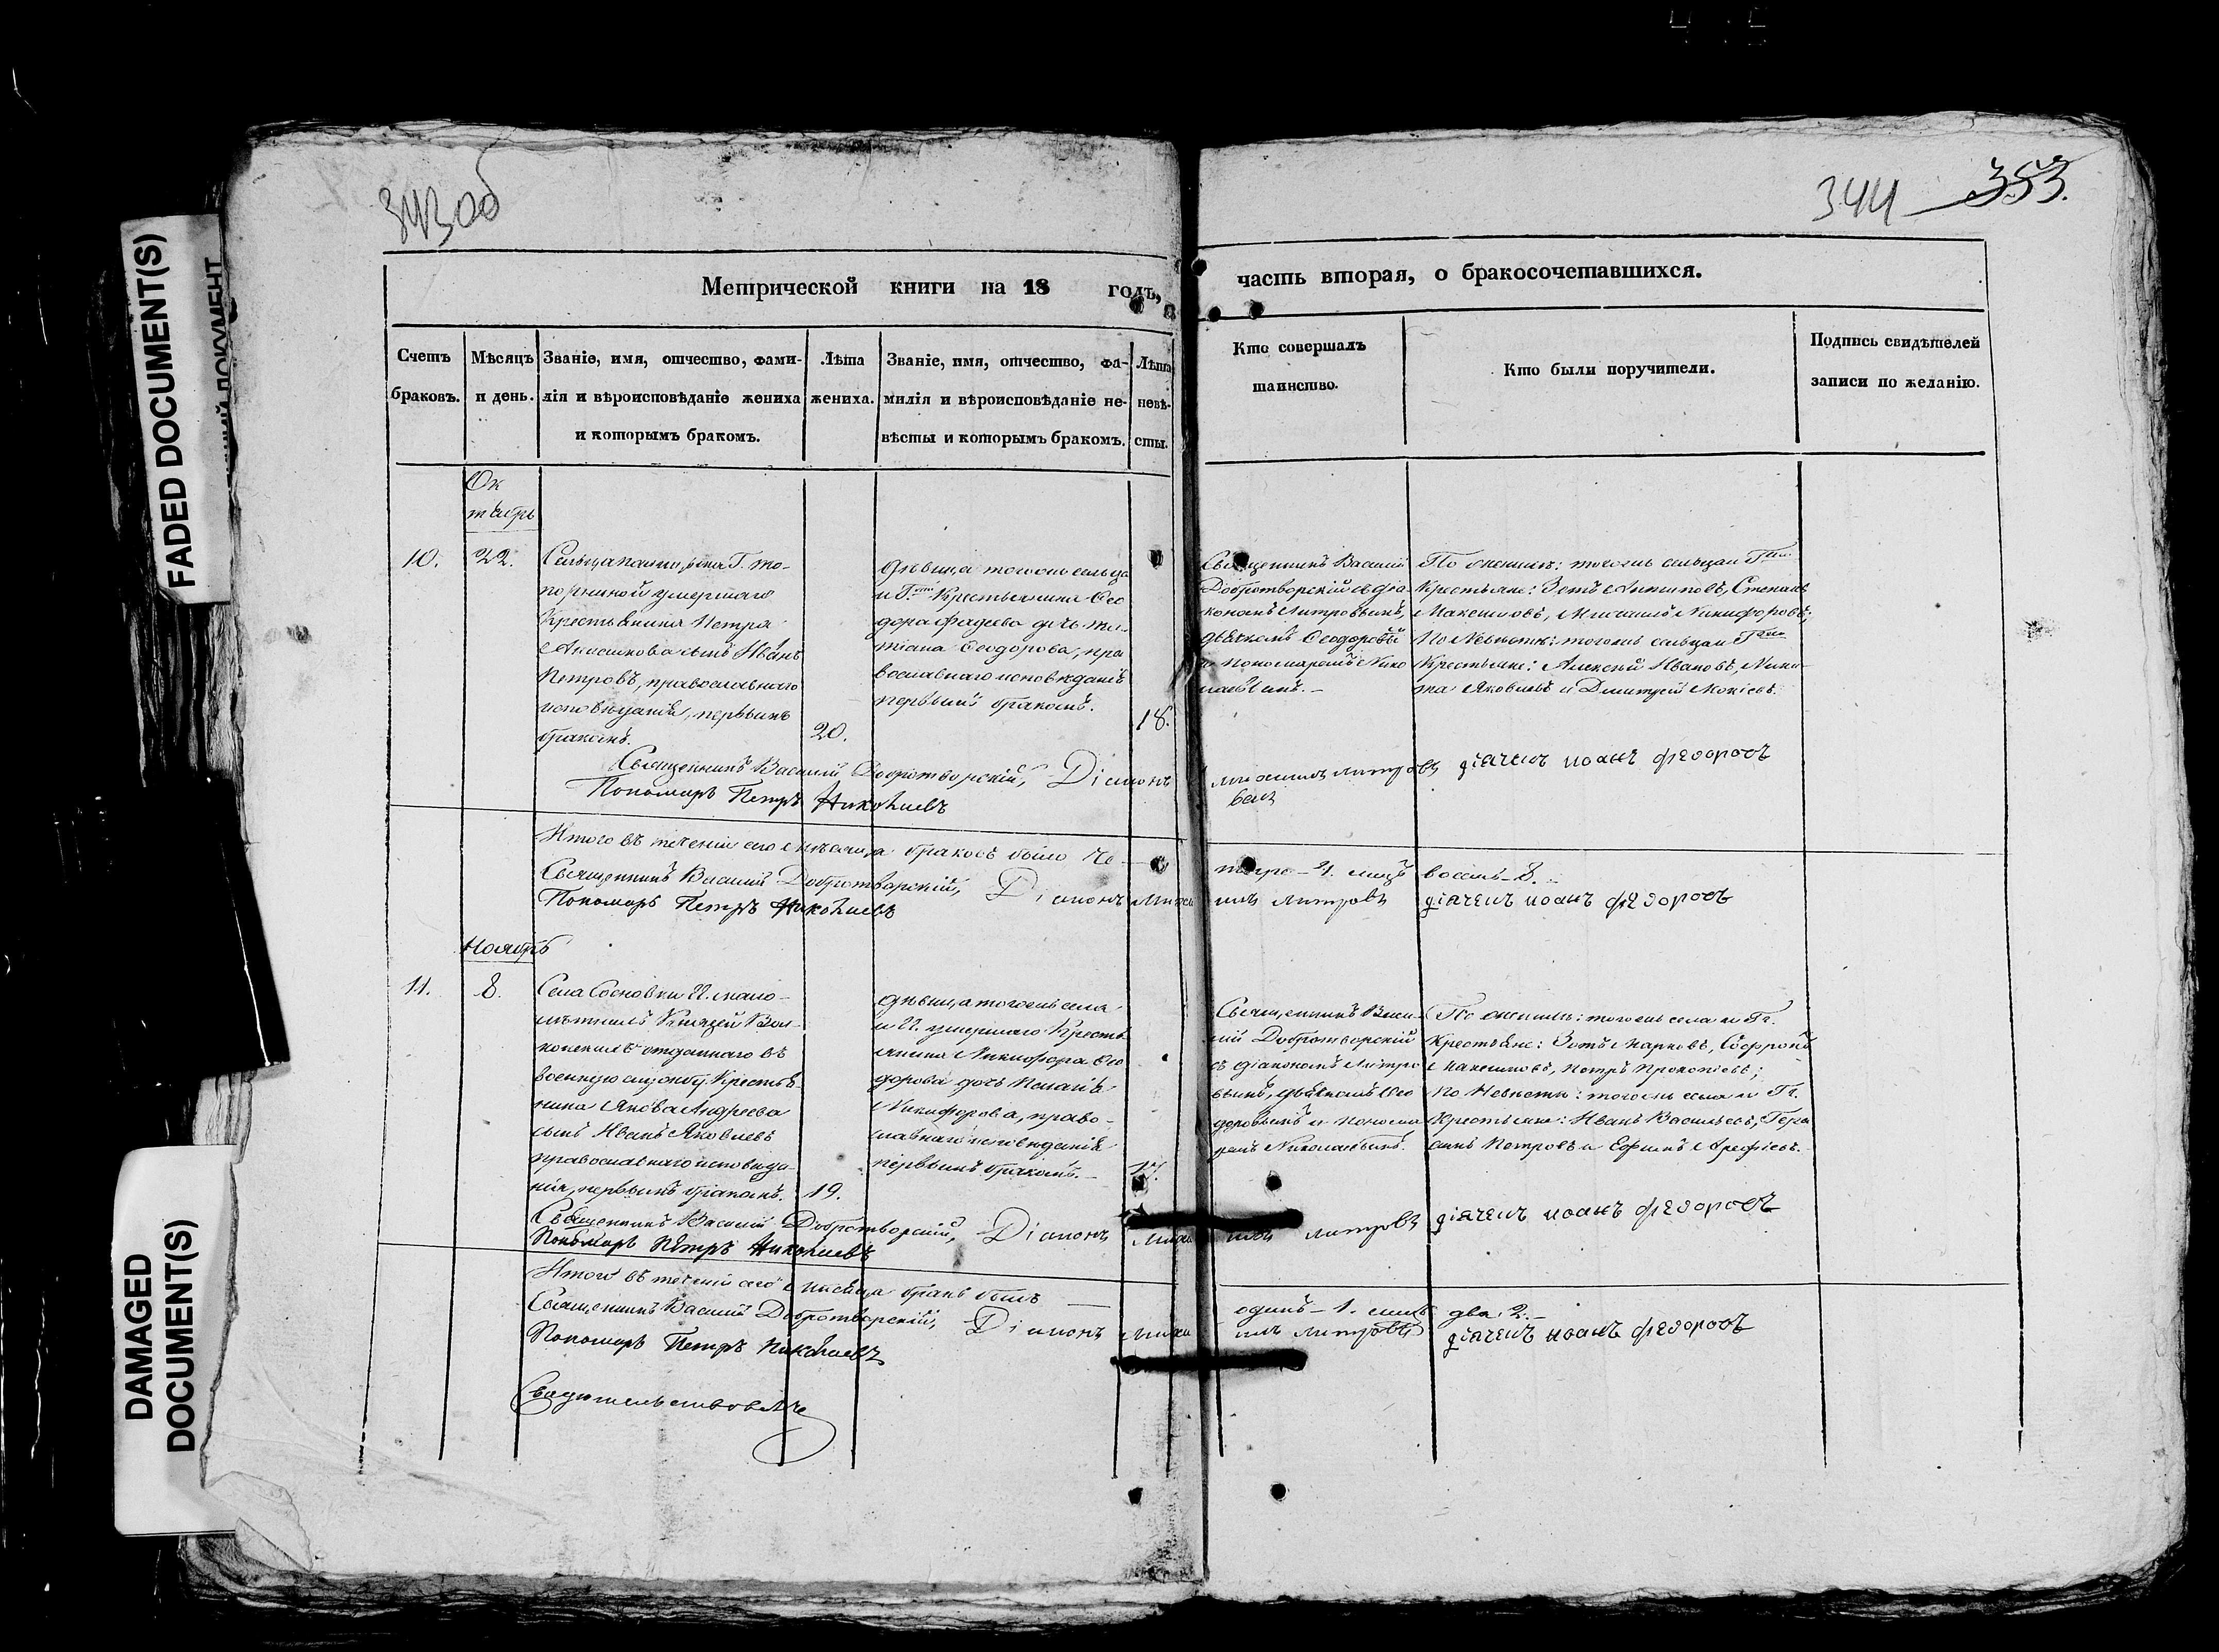 FADED DOCUMENT(S)
DAMAGED
DOCUMENT(S)
343 об
344 353.
Метрической книги на 18 годъ,
часть вторая, о бракосочетавшихся.
Счетъ
браковъ.
Мѣсяцъ
и день.
Званіе, имя, отчество, фами-
лія и вѣроисповѣданіе жениха
и которымъ бракомъ.
Лѣта
жениха.
Званіе, имя, отчество, фа-
милія и вѣроисповѣданіе не-
вѣсты и которымъ бракомъ.
Лѣта
невѣ-
сты.
Кто совершалъ
таинство.
Кто были поручители.
Подпись свидѣтелей
записи по желанію.
Ок
тябрь
10.
22.
умершаго
Крестьянина Петра
сынъ Иванъ
Петровъ, православнаго
исповѣданія, первымъ
бракомъ.
20.
дѣвица тогожъ сельца
и Г. Крестьянина Ѳео
дора Фадеева дочь
Ѳеодорова, пра
вославнаго исповѣданія
первымъ бракомъ.
18.
Священникъ Василій
Добротворскій съ діа-
кономъ Митровымъ,
дьячкомъ Ѳеодоровы
и пономаремъ Нико
лаевымъ.-
По женихѣ: тогожъ сельца и
Крестьяне: Зотъ Антиповъ, Степанъ
Максимовъ, Никифоровъ;
По Невѣстѣ: тогожъ сельца и
Крестьяне: Алексѣй Ивановъ, Ники-
та Яковлевъ и Дмитрей Мокіевъ.
Священникъ Василій Добротворскій, Діаконъ Михаилъ Митровъ дiячекъ иоанъ федоровъ
Пономарь Петръ Николаевъ
Итого въ теченіи сего мѣсяца браковъ было Че-
тыре-4. лицъ восемь-8.-
Священникъ Василій Добротворскій, Діаконъ Михаилъ Митровъ дiячекъ иоанъ федоровъ
Пономарь Петръ Николаевъ
Ноябрь
11.
8.
Села Сосновки И. мало-
лѣтнихъ Князей Вол-
конскихъ отданнаго въ
военную службу Крестья-
нина Якова Андреева
сынъ Иванъ Яковлевъ
православнаго исповѣда-
нія, первымъ бракомъ.
19.
дѣвица тогожъ села
и И. умершаго Кресть-
янина Никифора Ѳео
дорова дочь Пелагія
Никифорова, право-
славнаго исповѣданія
первымъ бракомъ.-
17.
Священникъ Васи-
лій Добротворскій
съ діакономъ Митро
вымъ, дьячкомъ Ѳео
доровымъ и понома
ремъ Николаевымъ.
По женихѣ: тогожъ села и Гг.
Крестьяне: Зотъ Марковъ, Софронъ
Максимовъ, Петръ Прокопіевъ;
По Невѣстѣ: тогожъ села и Гг.
Крестьяне: Иванъ Васильевъ, Гера
симъ Петровъ и Ефимъ Арефіевъ.
Священникъ Василій Добротворскій, Діаконъ Михаилъ Митровъ дiячекъ иоанъ федоровъ
Пономарь Петръ Николаевъ
Итого въ теченіи сего мѣсяца бракъ былъ
одинъ-1. лицъ два 2.-
Священникъ Василій Добротворскій, Діаконъ Михаилъ Митровъ дiячекъ иоанъ федоровъ
Пономарь Петръ Николаевъ